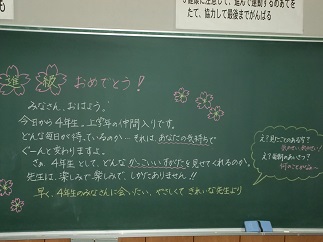 も
健康に注意して、進んで運動するめあてを
たて、協力して最後まで がんばる
進級 おめでとう！
みなさん、おはよう。
今日から4年生。上学年の仲間入りです。
どんな毎日が待っているのか…それは、あなたの気持ちで
ぐーんと変わりますよ。
さぁ、4年生として、どんなかっこいいすがたを見せてくれるのか。
先生は、楽しみで楽しみで、しかたありません!!
早く、4年生のみなさんに会いたい、やさしくて きれいな先生より
え？見たことのある字？
え？最新のあいさつ？
何のことかな～